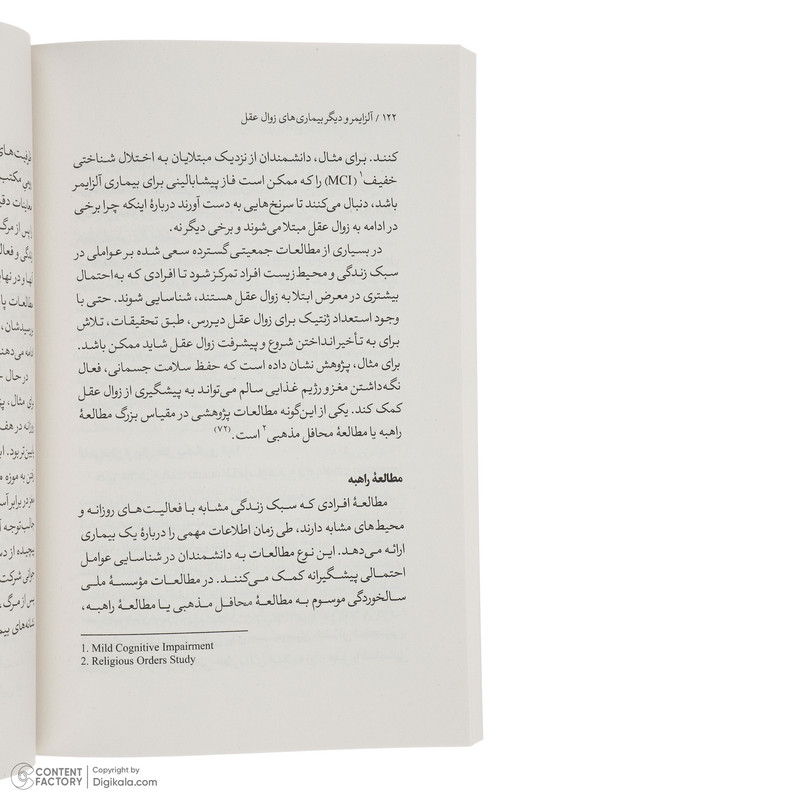 ۱۲۲ / آلزایمر و دیگر بیماری‌های زوال عقل
کنند. برای مثال، دانشمندان از نزدیک مبتلایان به اختلال شناختی
خفیف۱ (MCI) را که ممکن است فاز پیشابالینی برای بیماری آلزایمر
باشد، دنبال می‌کنند تا سرنخ‌هایی به دست آورند دربارهٔ اینکه چرا برخی
در ادامه به زوال عقل مبتلا می‌شوند و برخی دیگر نه.
در بسیاری از مطالعات جمعیتی گسترده سعی شده بر عواملی در
سبک زندگی و محیط زیست افراد تمرکز شود تا افرادی که به‌احتمال
بیشتری در معرض ابتلا به زوال عقل هستند، شناسایی شوند. حتی با
وجود استعداد ژنتیک برای زوال عقل دیررس، طبق تحقیقات، تلاش
برای به تأخیر انداختن شروع و پیشرفت زوال عقل شاید ممکن باشد.
برای مثال، پژوهش نشان داده است که حفظ سلامت جسمانی، فعال
نگه‌داشتن مغز و رژیم غذایی سالم می‌تواند به پیشگیری از زوال عقل
کمک کند. یکی از این‌گونه مطالعات پژوهشی در مقیاس بزرگ مطالعهٔ
راهبه یا مطالعهٔ محافل مذهبی۲ است.(۷۲)
مطالعهٔ راهبه
مطالعهٔ افرادی که سبک زندگی مشابه با فعالیت‌های روزانه و
محیط‌های مشابه دارند، طی زمان اطلاعات مهمی را دربارهٔ یک بیماری
ارائه می‌دهد. این نوع مطالعات به دانشمندان در شناسایی عوامل
احتمالی پیشگیرانه کمک می‌کنند. در مطالعات مؤسسهٔ ملی
سالخوردگی موسوم به مطالعهٔ محافل مذهبی یا مطالعهٔ راهبه،
1. Mild Cognitive Impairment
2. Religious Orders Study
CONTENT FACTORY
Copyright by
Digikala.com